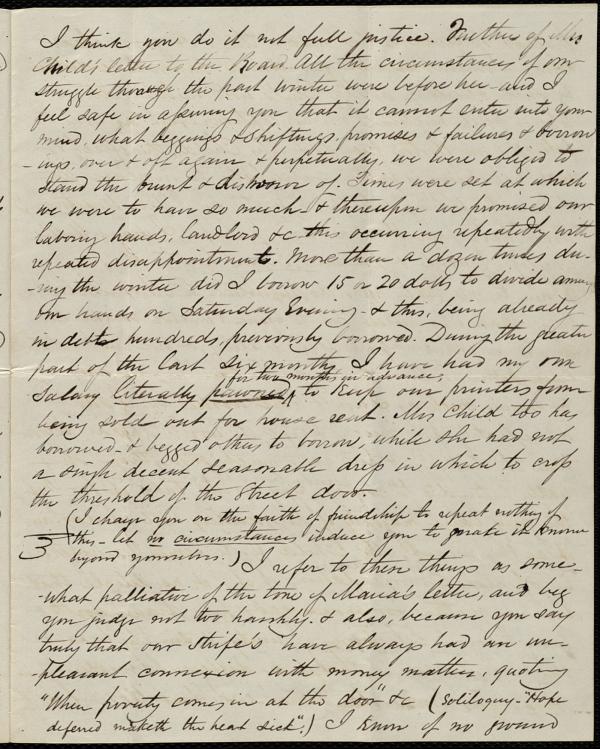 I think you do it not full justice. Further of Mrs
Child's letter to the Board. All the circumstances of our
struggle through the past winter were before her - and I
feel safe in assuring you that it cannot enter into your
mind, what beggings & shiftings, promises & failures & borrow
-ings, over & oft again & perpetually, we were obliged to
stand the brunt & dishonor of. Times were set at which
we were to have so much - & thereupon we promised our
laboring hands, landlord &c. this occurring repeatedly with
repeated disappointments. More than a dozen times du-
-ring the winter did I borrow 15 or 20 dolls to divide among
our hands on Saturday Evening - & this, being already
in debt hundreds, previously borrowed. During the greater
part of the last six months I have had my own
for two months in advance,
salary literally pawned, to keep our printers from
being sold out for house rent. Mrs Child too has
borrowed - & begged others to borrow, while she had not
a single decent seasonable dress in which to cross
the threshold of the street door.
(I charge you on the faith of friendship to repeat nothing of
3 this - let no circumstances induce you to make it known
beyond yourselves.) I refer to these things as some-
-what palliative of the tone of Maria's letter, and beg
you judge not too harshly. & also, because you say
truly that our strife's have always had an un-
-pleasant connexion with money matters, quoting
"When poverty comes in at the door" &c (Soliloquy - "Hope
deferred maketh the heart sick".) I know of no ground